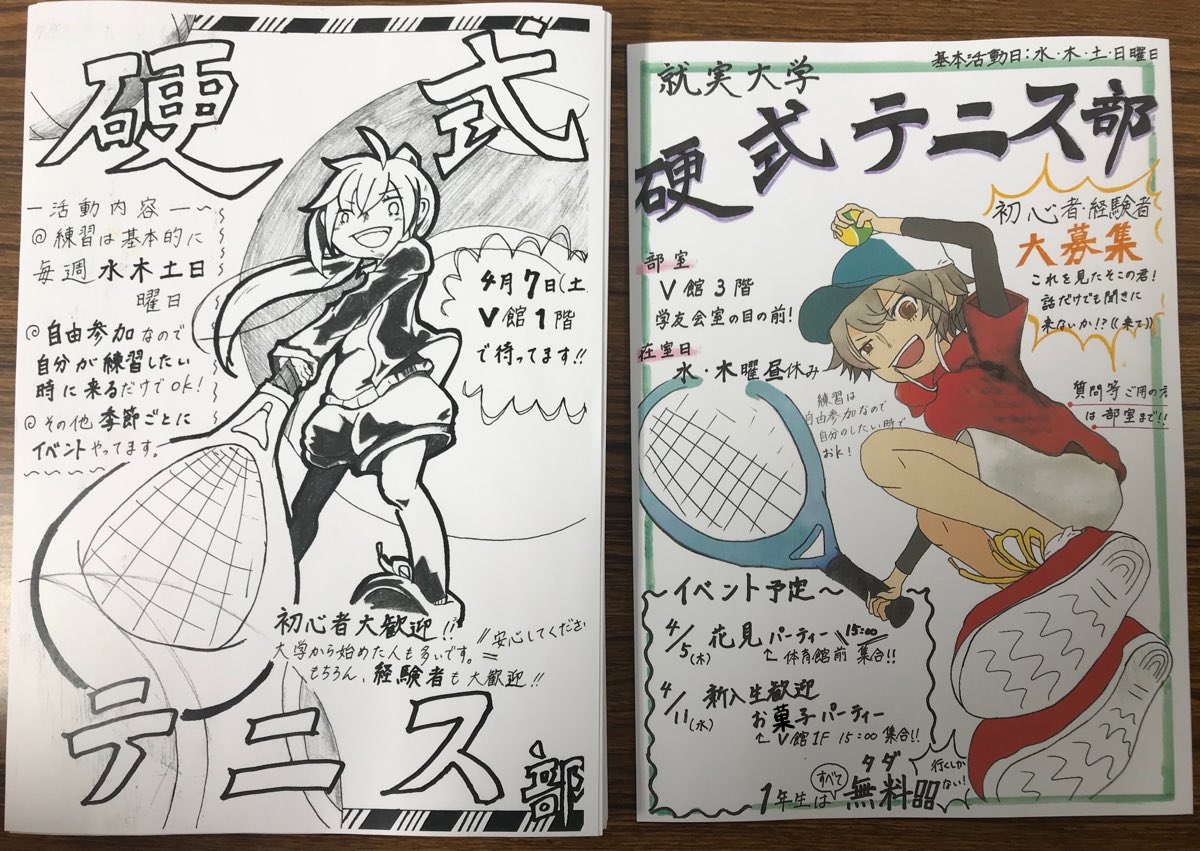 硬式
－活動内容－
@練習は基本的に
毎週水木土日
曜日
@自由参加なので
自分が練習したい
時に来るだけでOK!
@その他季節ごとに
イベントやってます。
4月7日(土
V館1階
で待ってます!!
初心者大歓迎!!
大学から始めた人も多いです。
安心してくださ
もちろん、経験者も大歓迎!!
テニス部
基本活動日:水・木・土・日曜日
就実大学
硬式テニス部
初心者・経験者
大募集
これを見たそこの君!
話だけでも聞きに
来ないか!?((来て))
部室
V館3階
学友会室の目の前!
在室日
水・木曜昼休み
練習は
自由参加なので
自分のしたい時で
おk!
質問等ご用の方
は部室まで!!
～イベント予定～
4/5(木) 花見パーティー 15:00
↳体育館前 集合!!
4/11(水) 新入生歓迎
お菓子パーティー
↳V館1F 15:00集合!!
1年生はすべて無料!!
タダ
行くしか
ない!